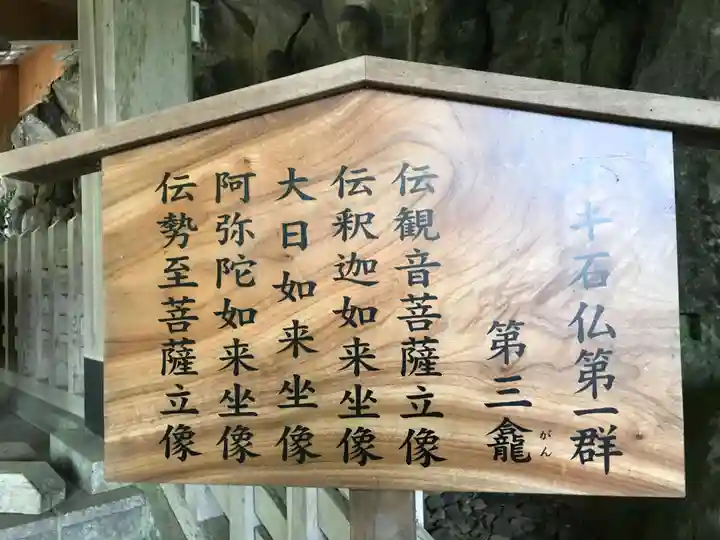 ホキ石仏第一群
第三龕
がん
伝観音菩薩立像
伝釈迦如来坐像
大日如来坐像
阿弥陀如来坐像
伝勢至菩薩立像